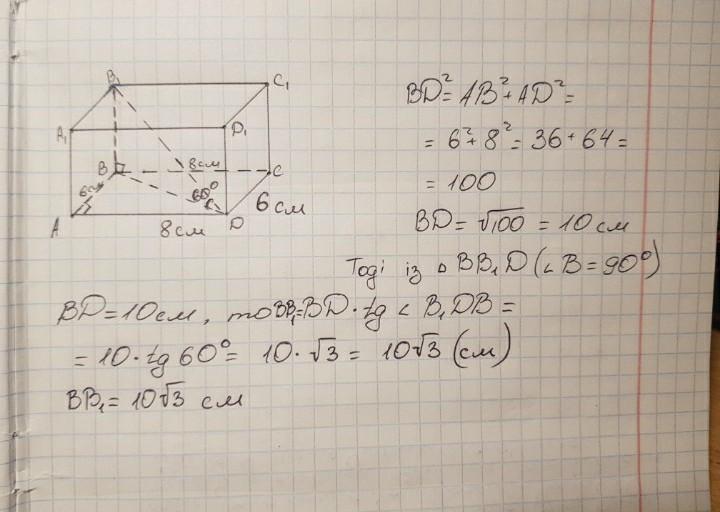 B₁
C₁
A₁
D₁
B
8см
C
6см
60°
6см
A
8см
D
BD² = AB² + AD² =
= 6² + 8² = 36 + 64 =
= 100
BD = √100 = 10 см
Тоді із △ BB₁D (∠B = 90°)
BD = 10 см, то BB₁ = BD · tg ∠ B₁DB =
= 10 · tg 60° = 10 · √3 = 10√3 (см)
BB₁ = 10√3 см